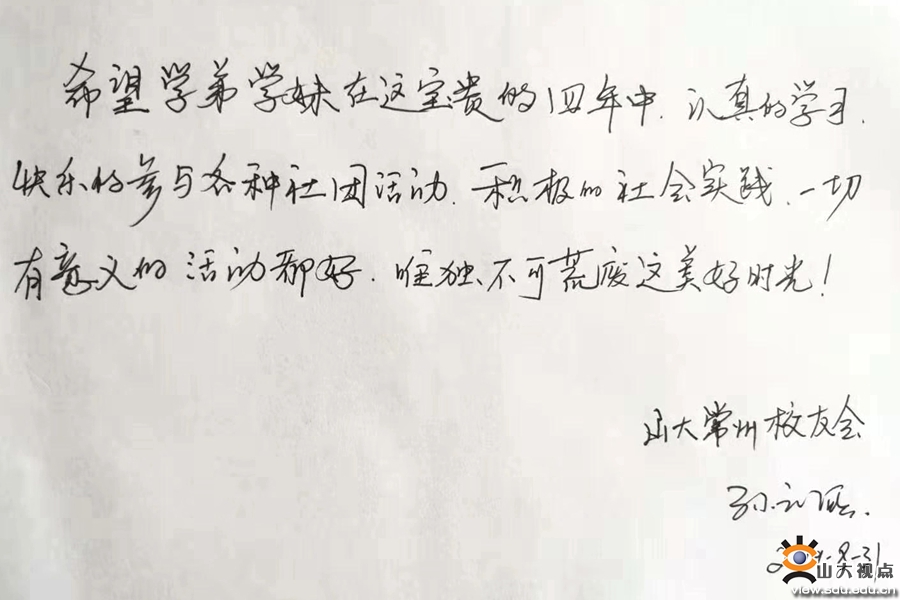 希望学弟学妹在这宝贵的四年中.认真的学习.
快乐的参与各种社团活动.积极的社会实践.一切
有意义的活动都好.唯独不可荒废这美好时光!
山大常州校友会
孙
8-31
山大视点
view.sdu.edu.cn